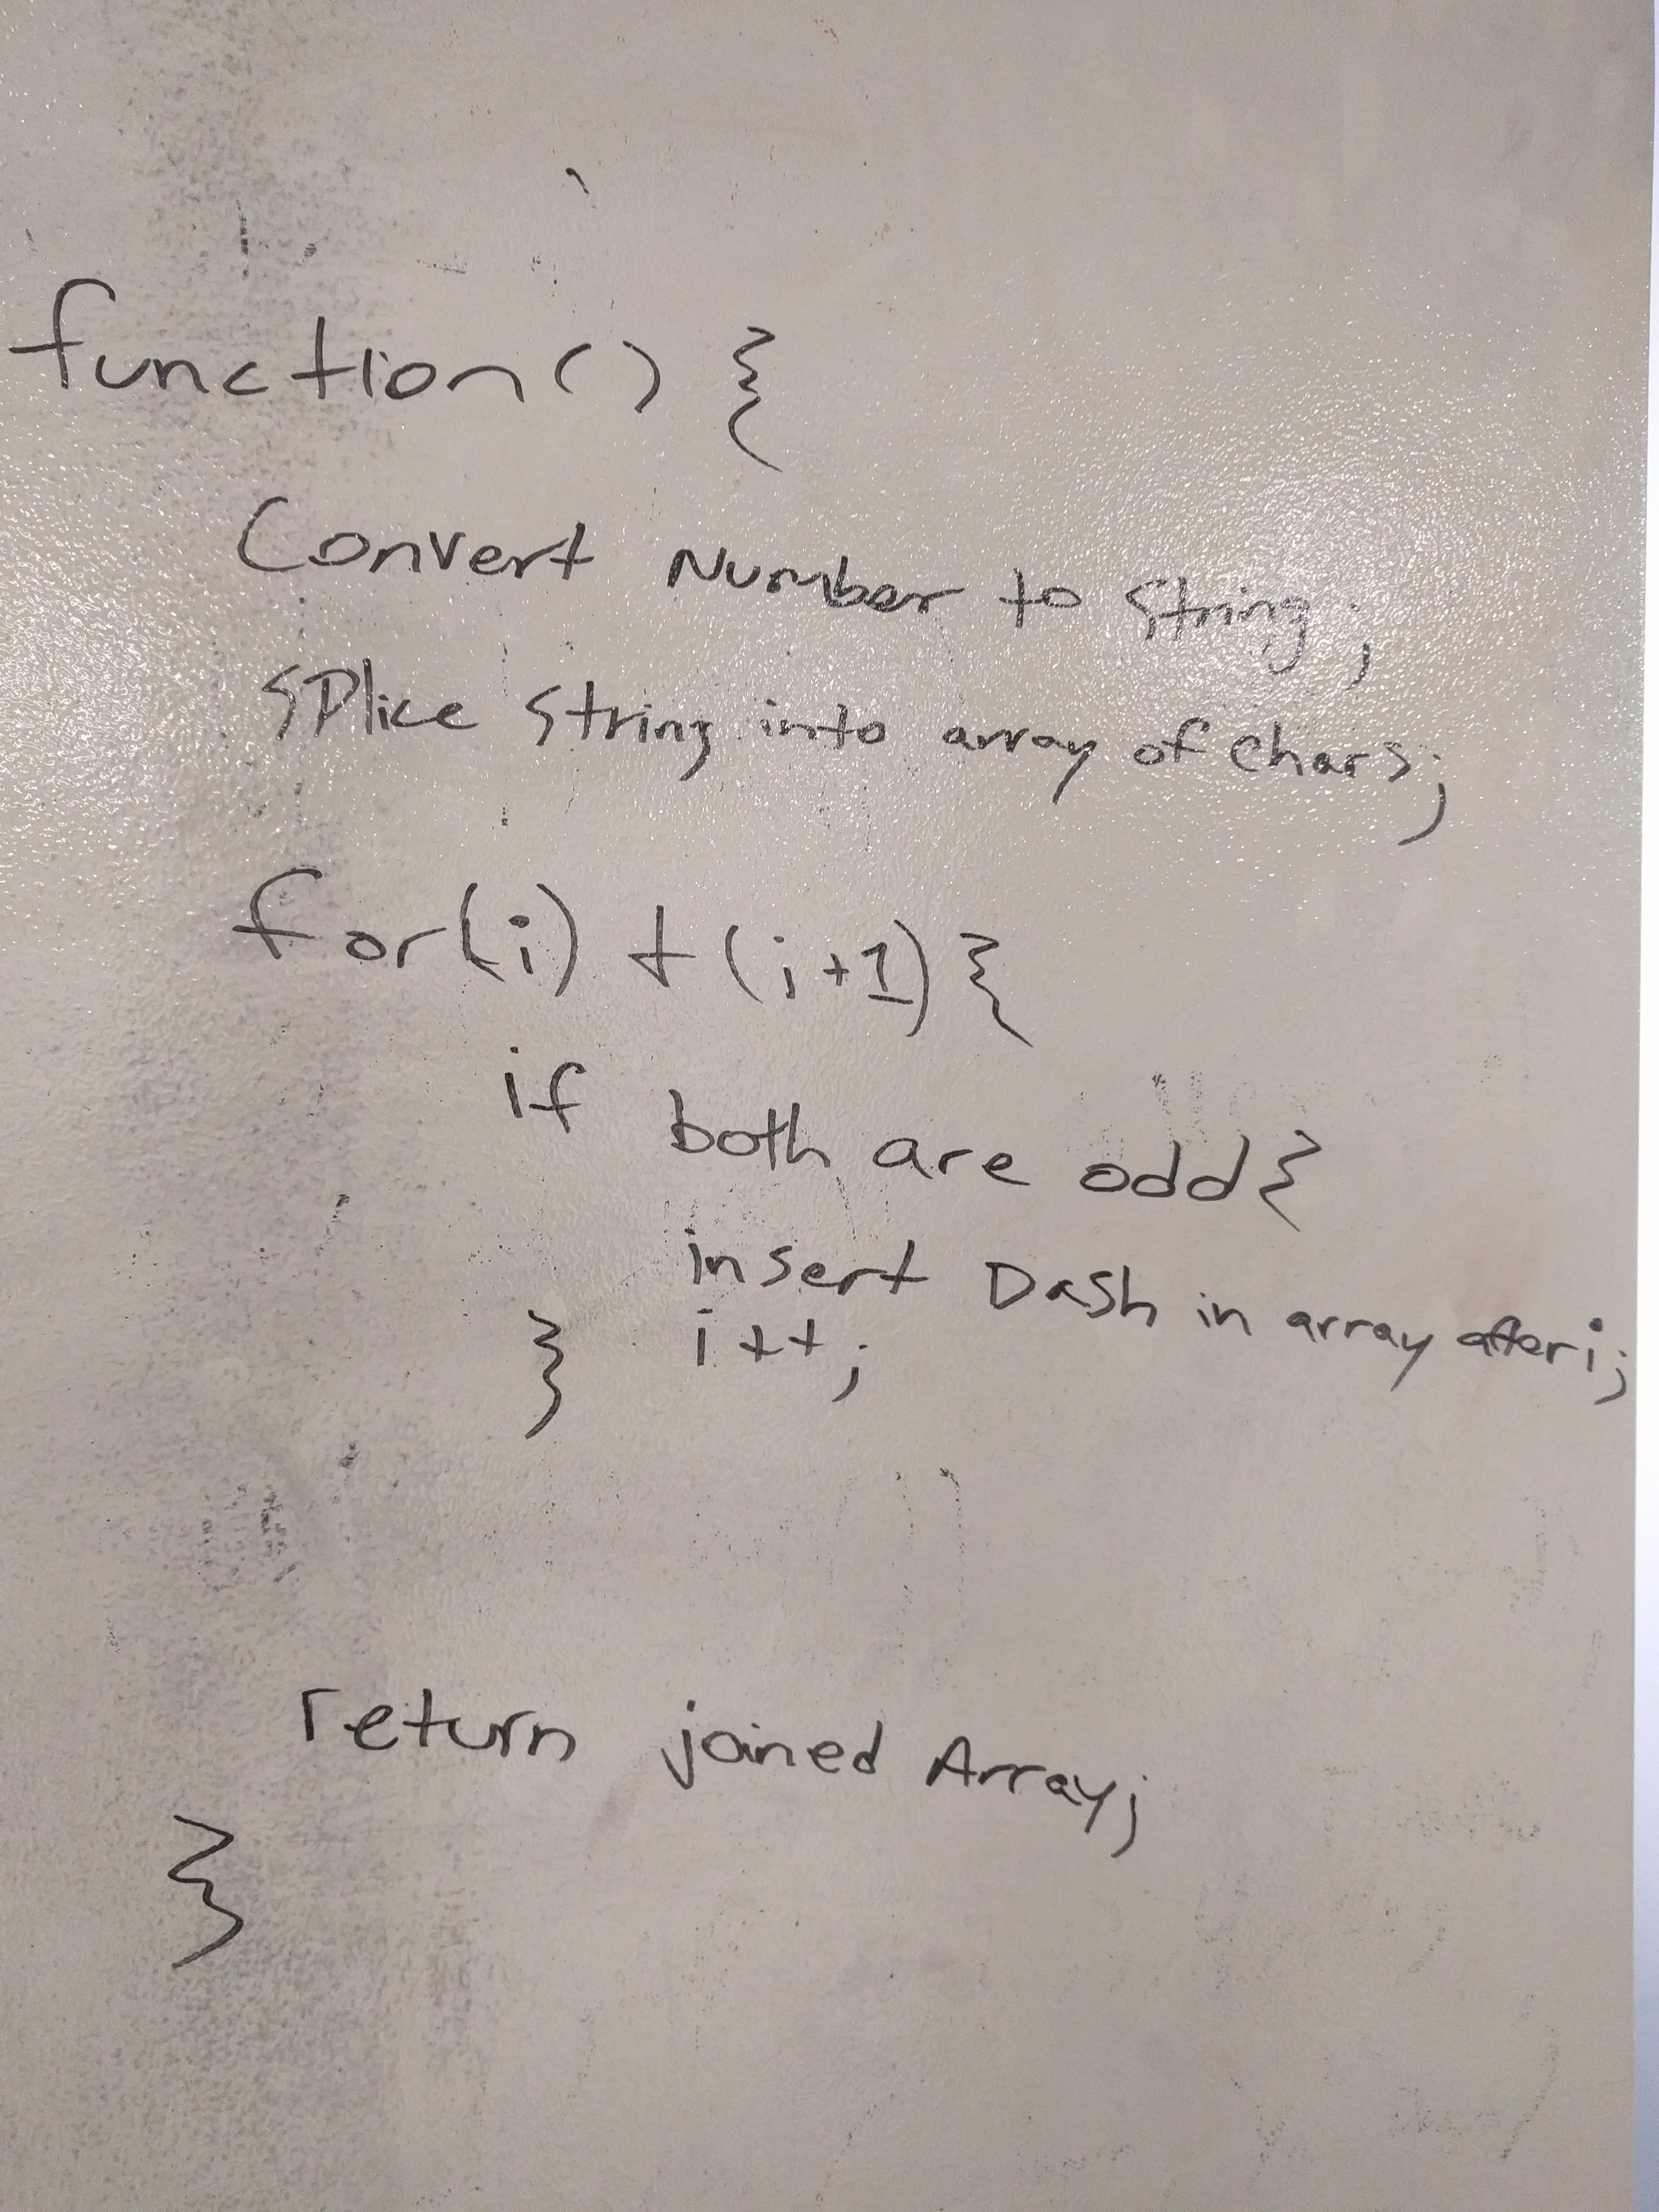 function() {
Convert Number to String;
Splice String into array of chars;
for(i) + (i+1) {
if both are odd {
insert Dash in array after i;
} i++;
return joined Array;
}